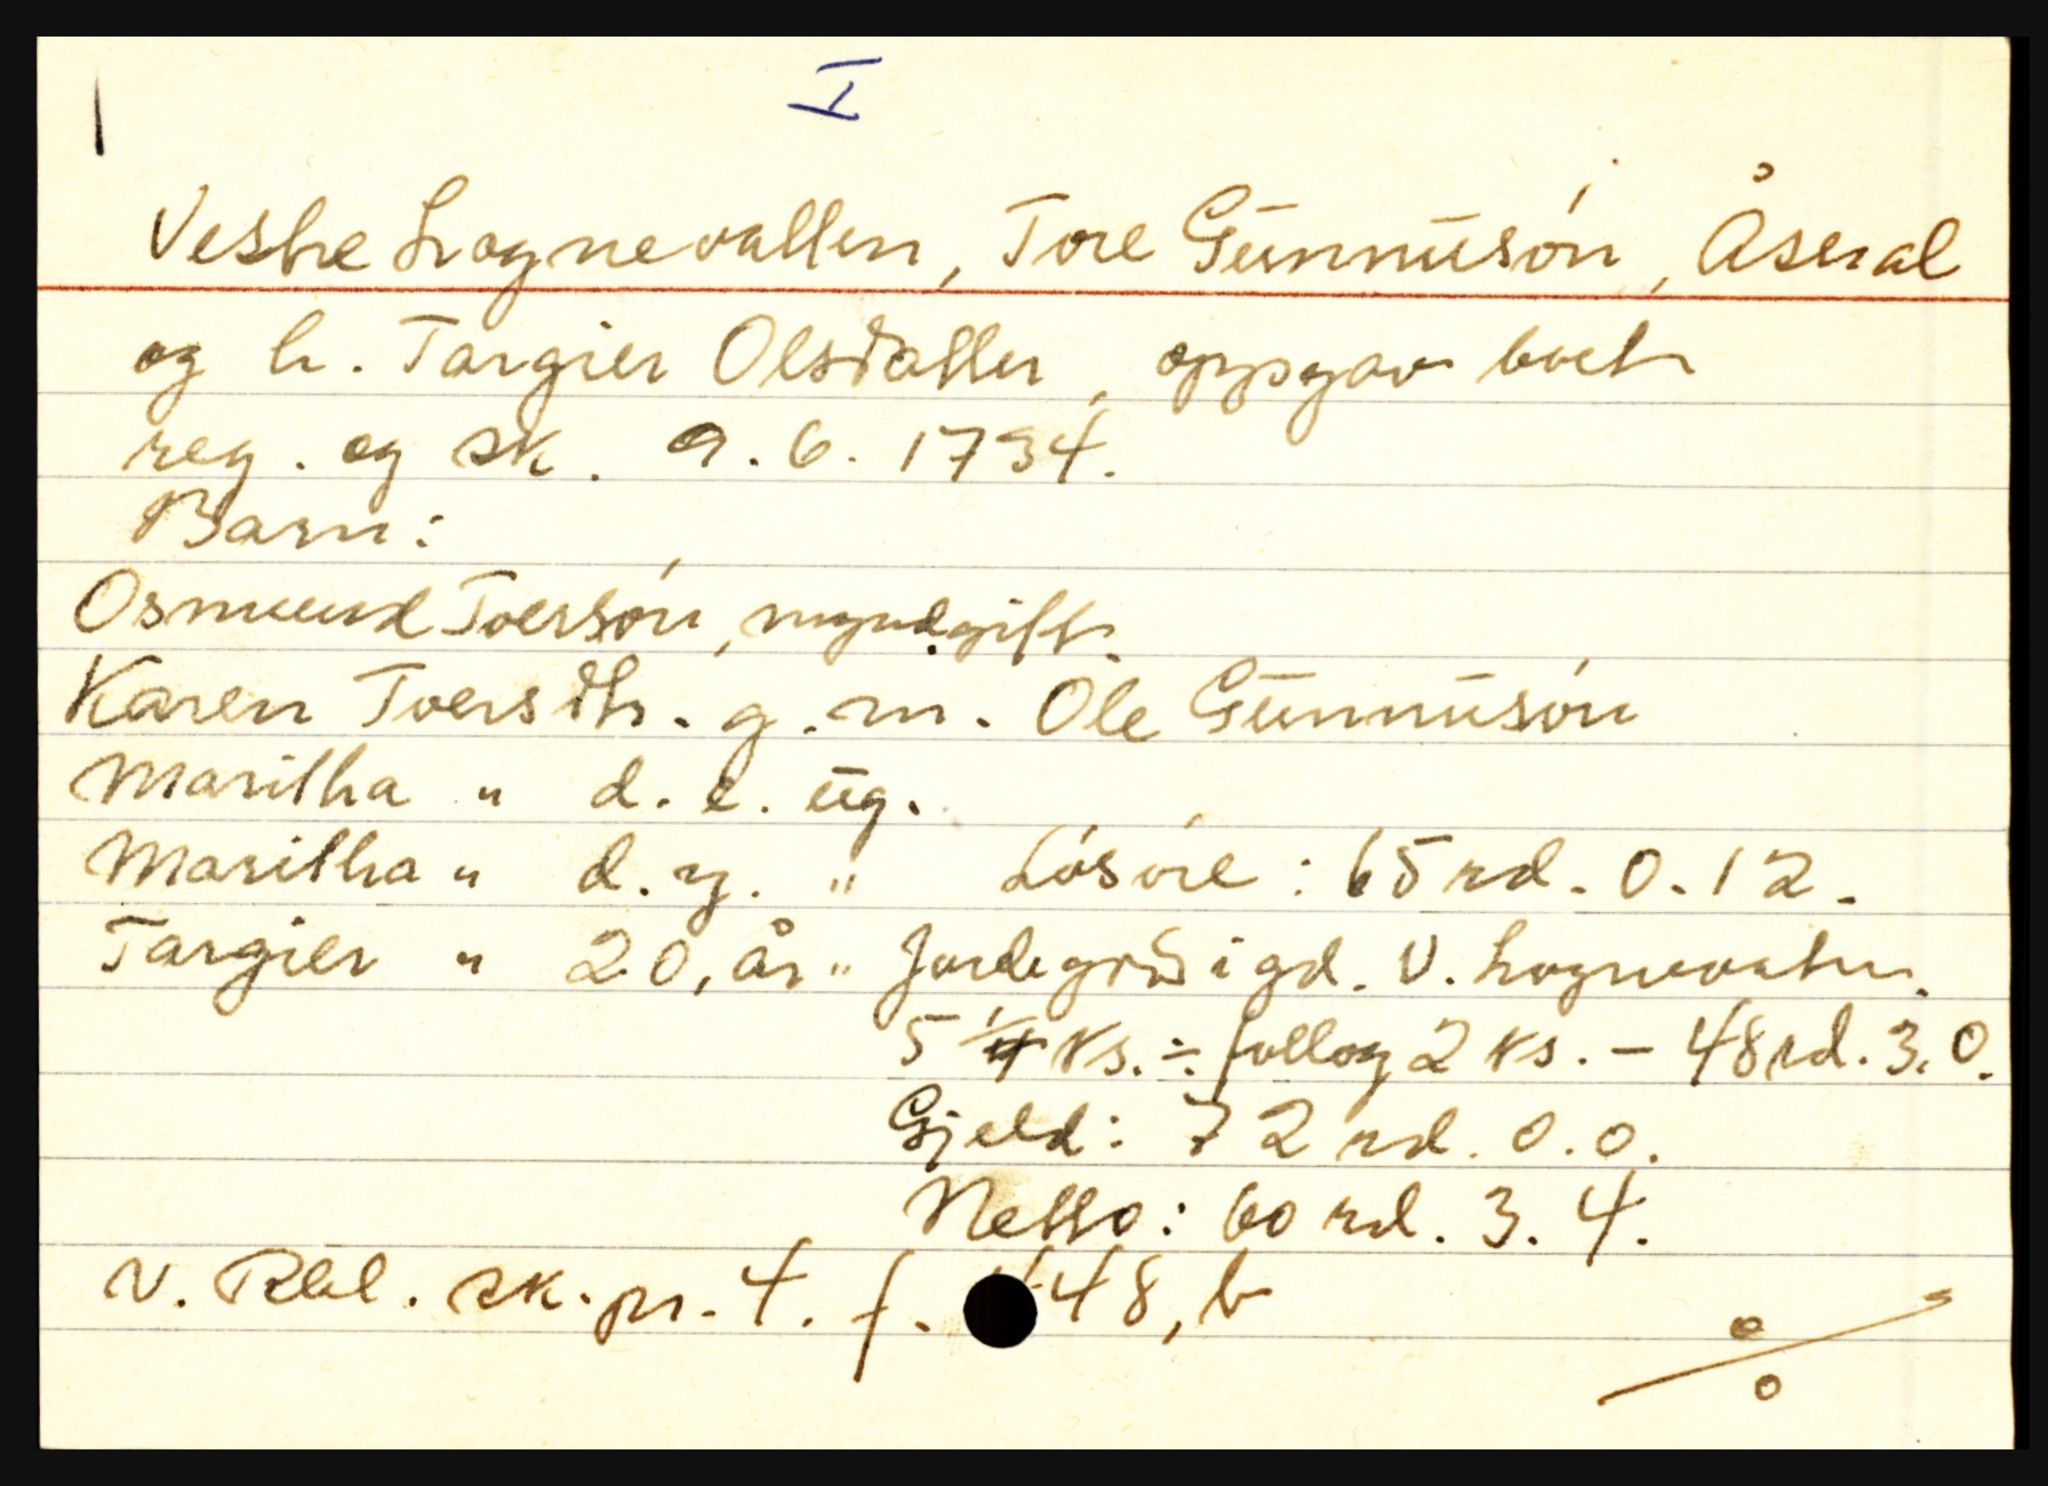 I
Vestre Lognevatten, Tore Gunnusón, Åseral
og h. Targier Olsdatter, oppgav boets
reg. og sk. 9.6.1734.
Barn:
Osmund Toersón, myndgift.
Karen Toersdtr. g.m. Ole Gunnusón
Maritha " d.e. ug.
Maritha " d.y. " Lósóre: 65 rd. 0.12.
Targier " 20, år " Jordegods i gd. V. Lognevatn.
5 1/4 ks. ÷ follog 2 ks. - 48 rd. 3.0.
Gjeld: 72 rd. 0.0.
Netto: 60 rd. 3.4.
V. Rbl. sk.pr. 4. f. 148, b